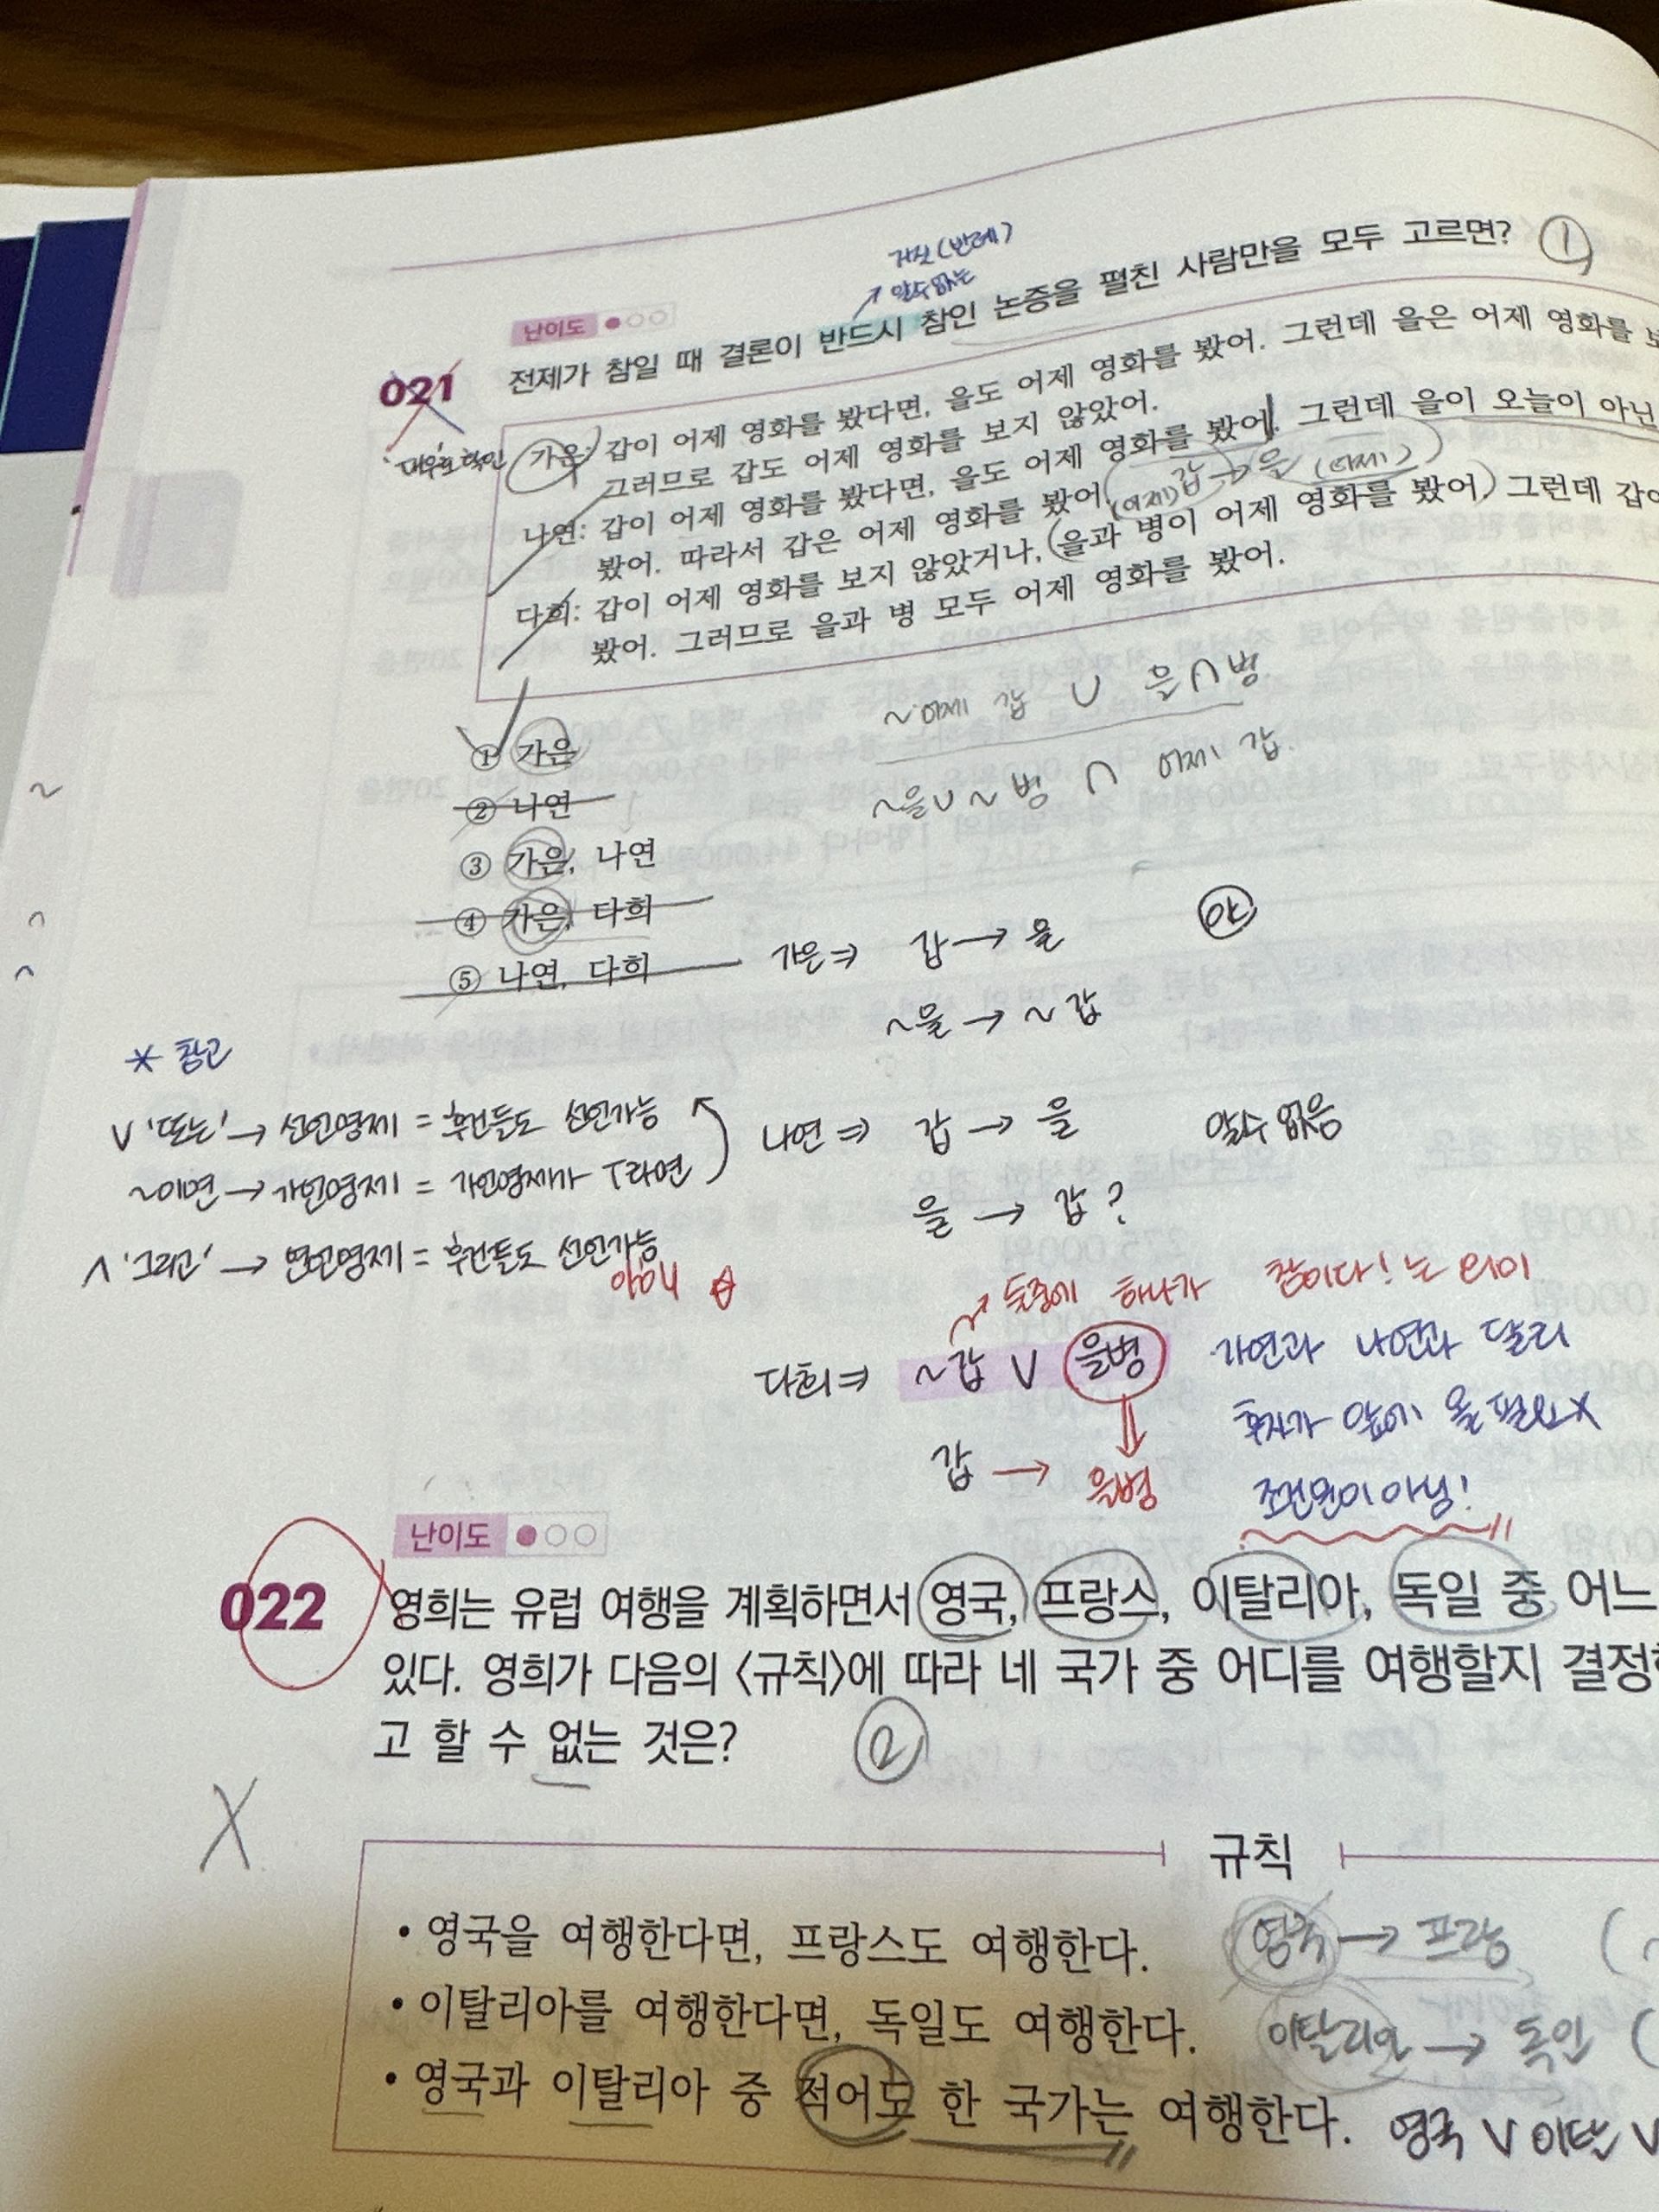 거짓(반례)
알수없는
난이도
021 전제가 참일 때 결론이 반드시 참인 논증을 펼친 사람만을 모두 고르면? ①
'대우'로 확인
가은: 갑이 어제 영화를 봤다면, 을도 어제 영화를 봤어. 그런데 을은 어제 영화를
그러므로 갑도 어제 영화를 보지 않았어.
나연: 갑이 어제 영화를 봤다면, 을도 어제 영화를 봤어. 그런데 을이 오늘이 아닌
봤어. 따라서 갑은 어제 영화를 봤어. (어제)갑→을 (어제)
다희: 갑이 어제 영화를 보지 않았거나, (을과 병이 어제 영화를 봤어) 그런데 갑이
봤어. 그러므로 을과 병 모두 어제 영화를 봤어.
~어제 갑 ∪ 을∩병
~을∪~병 ∩ 어제 갑
① 가은
② 나연
③ 가은, 나연
④ 가은, 다희
⑤ 나연, 다희
가은⇒ 갑→을
~을→~갑
* 참고
∨ '또는' → 선언명제 = 후건들도 선언가능
~이면 → 가언명제 = 가언명제가 T라면
∧ '그리고' → 연언명제 = 후건들도 선언가능
아님 ☆
나연⇒ 갑→을 알수 없음
을→갑?
둘중에 하나가 참이다! 는 의미
다희⇒ ~갑 ∨ 을병
갑→을병
가연과 나연과 달리
후자가 앞에 올 필요X
조건문이 아님!
난이도
022 영희는 유럽 여행을 계획하면서 영국, 프랑스, 이탈리아, 독일 중 어느
있다. 영희가 다음의 〈규칙〉에 따라 네 국가 중 어디를 여행할지 결정
고 할 수 없는 것은? ②
X
규칙
• 영국을 여행한다면, 프랑스도 여행한다. 영국→프랑
• 이탈리아를 여행한다면, 독일도 여행한다. 이탈리아→독일
• 영국과 이탈리아 중 적어도 한 국가는 여행한다. 영국 ∨ 이탈 ∨